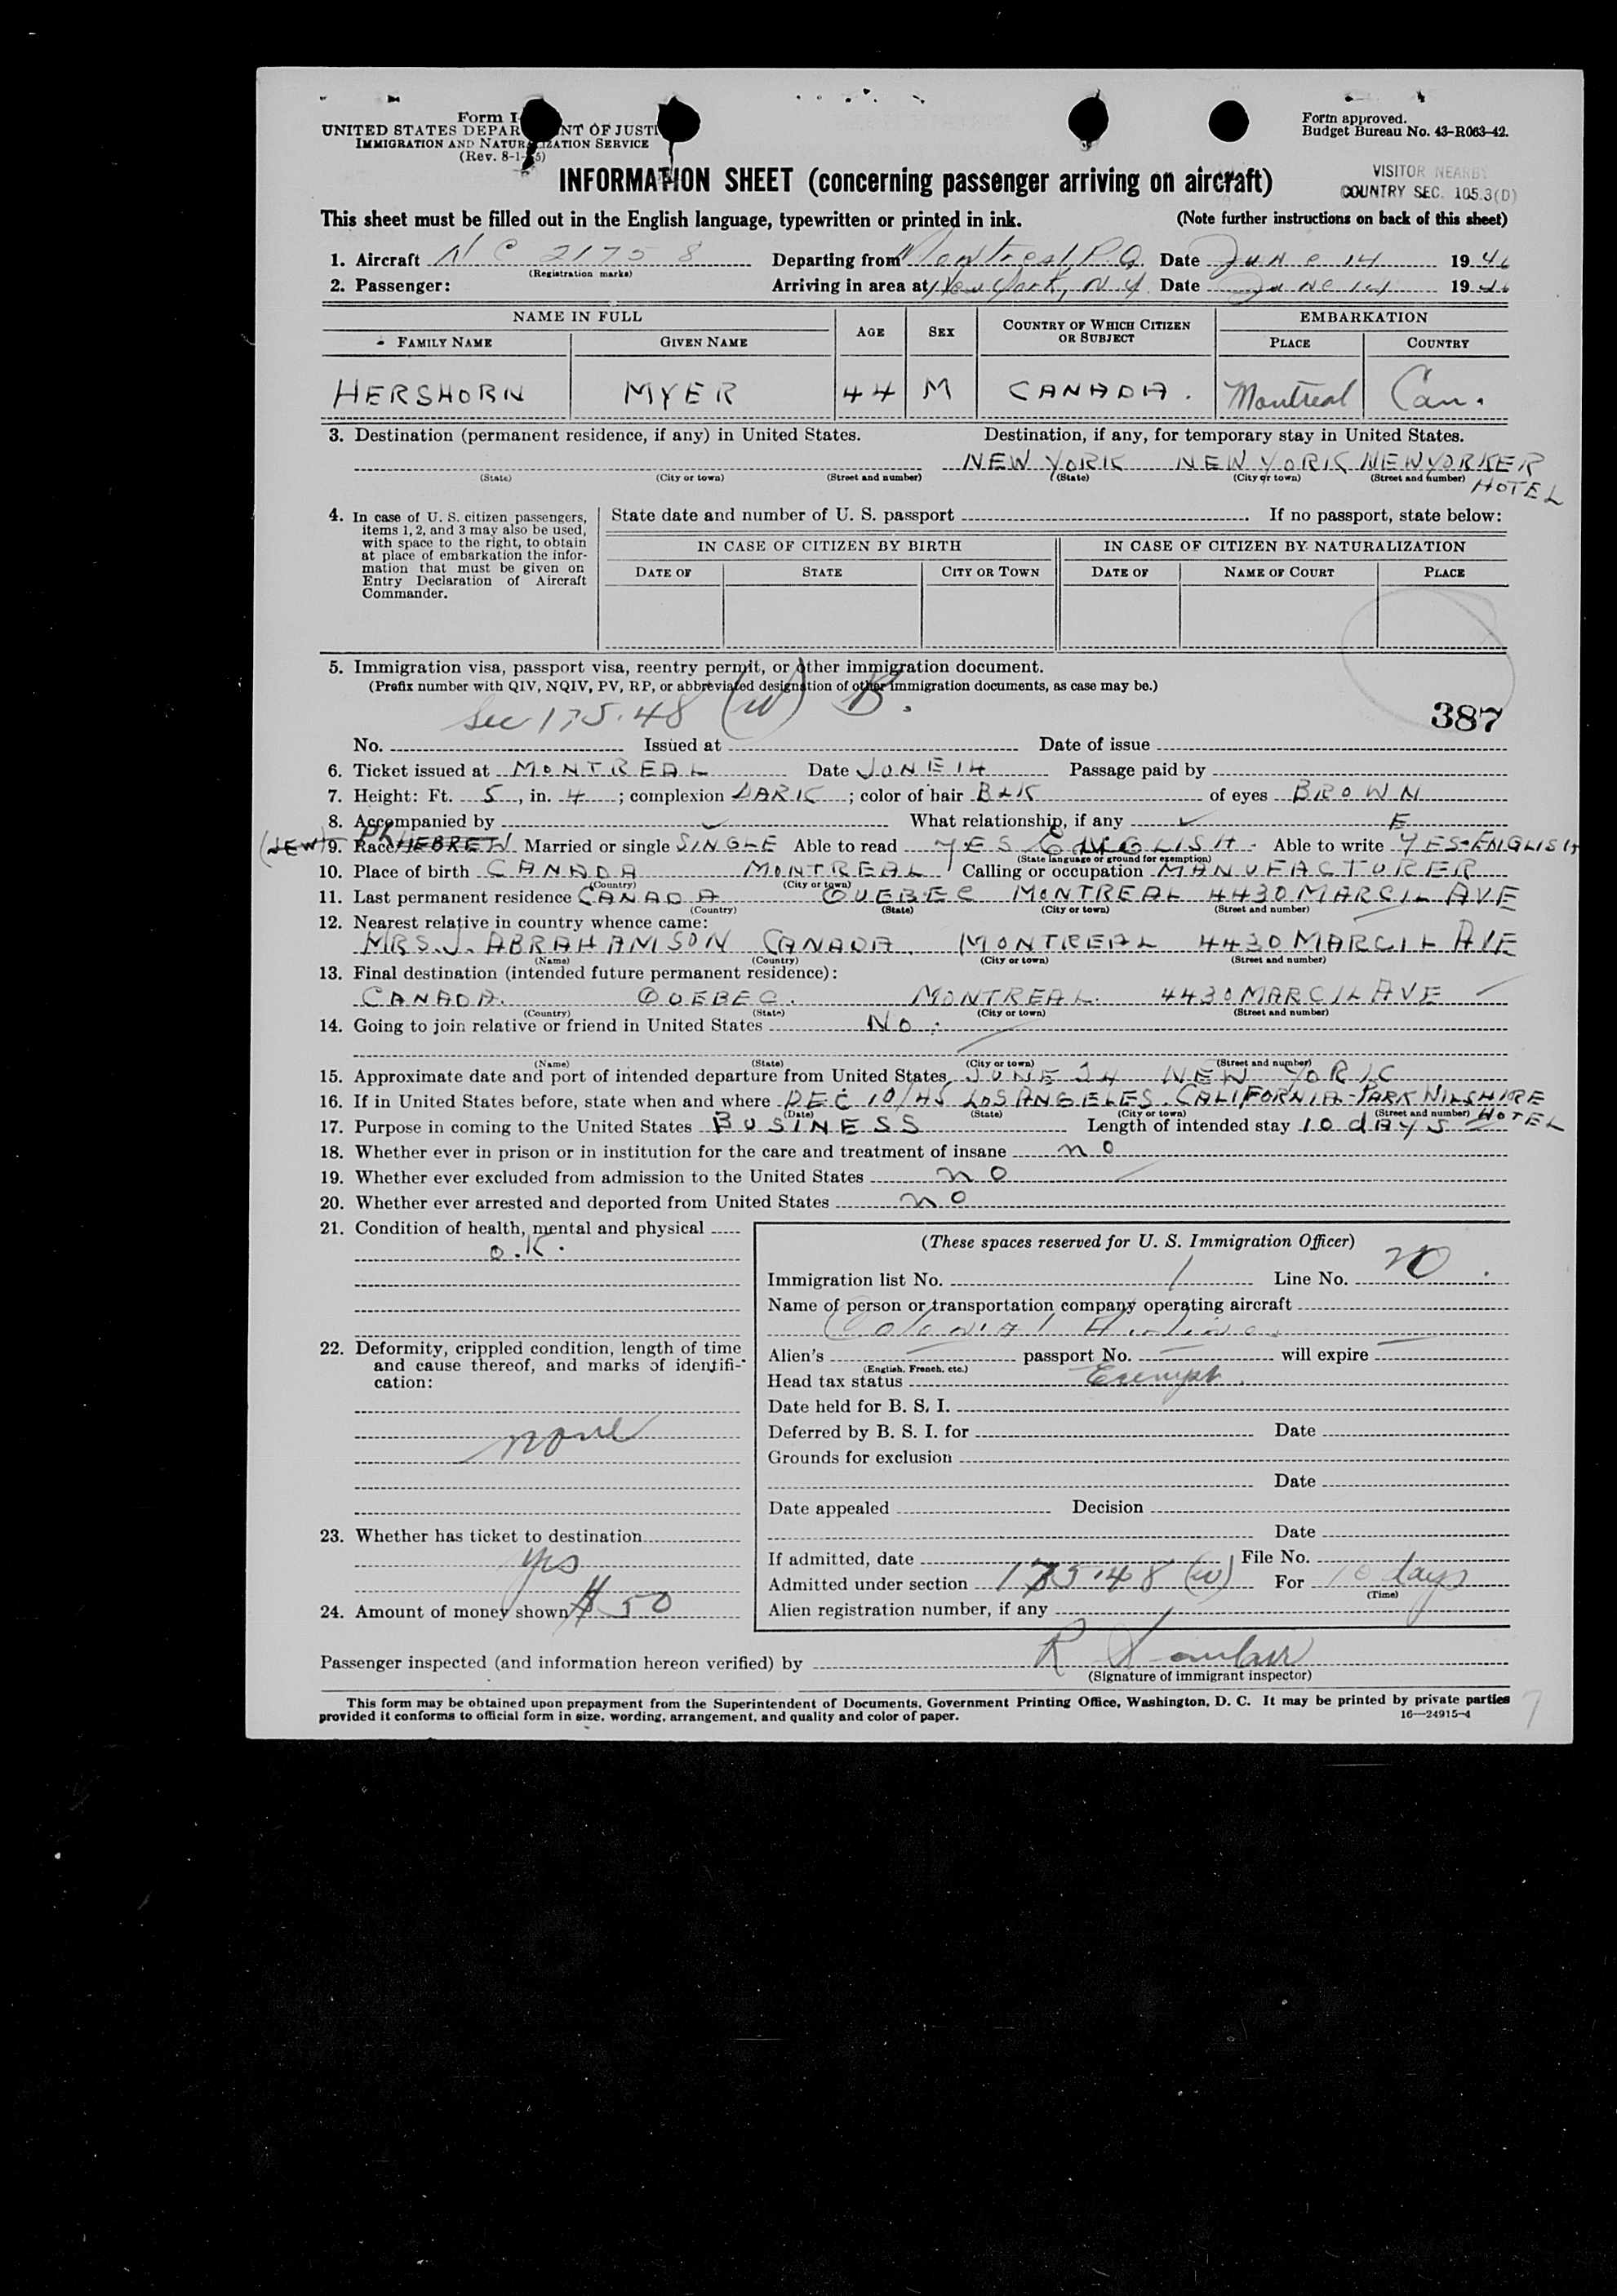 Form I-
UNITED STATES DEPAR NT OF JUSTI
IMMIGRATION AND NATURALIZATION SERVICE
(Rev. 8-1- 5)
Form approved.
Budget Bureau No. 43-R063-42.
INFORMATION SHEET (concerning passenger arriving on aircraft)
VISITOR NEARBY
COUNTRY SEC. 105.3(D)
This sheet must be filled out in the English language, typewritten or printed in ink. (Note further instructions on back of this sheet)
1. Aircraft NC 21758 Departing from Montreal P.Q. Date June 14 1946
(Registration marks)
2. Passenger: Arriving in area at New York, N.Y. Date June 14 1946
NAME IN FULL AGE SEX COUNTRY OF WHICH CITIZEN OR SUBJECT EMBARKATION
FAMILY NAME GIVEN NAME PLACE COUNTRY
HERSHORN MYER 44 M CANADA. Montreal Can.
3. Destination (permanent residence, if any) in United States. Destination, if any, for temporary stay in United States.
NEW YORK NEW YORK NEWYORKER HOTEL
(State) (City or town) (Street and number) (State) (City or town) (Street and number)
4. In case of U. S. citizen passengers, items 1, 2, and 3 may also be used, with space to the right, to obtain at place of embarkation the information that must be given on Entry Declaration of Aircraft Commander.
State date and number of U. S. passport If no passport, state below:
IN CASE OF CITIZEN BY BIRTH IN CASE OF CITIZEN BY NATURALIZATION
DATE OF STATE CITY OR TOWN DATE OF NAME OF COURT PLACE
5. Immigration visa, passport visa, reentry permit, or other immigration document.
(Prefix number with QIV, NQIV, PV, RP, or abbreviated designation of other immigration documents, as case may be.)
Sec 175.48 (w) B.
387
No. Issued at Date of issue
6. Ticket issued at MONTREAL Date JUNE 14 Passage paid by
7. Height: Ft. 5, in. 4; complexion DARK; color of hair BLK of eyes BROWN
8. Accompanied by What relationship, if any
(JEW) 9. Race HEBREW Married or single SINGLE Able to read YES ENGLISH. Able to write YES-ENGLISH
(State language or ground for exemption)
10. Place of birth CANADA MONTREAL Calling or occupation MANUFACTURER
(Country) (City or town)
11. Last permanent residence CANADA QUEBEC MONTREAL 4430 MARCIL AVE
(Country) (State) (City or town) (Street and number)
12. Nearest relative in country whence came:
MRS. J. ABRAHAMSON CANADA. MONTREAL 4430 MARCIL AVE
(Name) (Country) (City or town) (Street and number)
13. Final destination (intended future permanent residence):
CANADA. QUEBEC. MONTREAL. 4430 MARCIL AVE
(Country) (State) (City or town) (Street and number)
14. Going to join relative or friend in United States No.
(Name) (State) (City or town) (Street and number)
15. Approximate date and port of intended departure from United States JUNE 24 NEW YORK
16. If in United States before, state when and where DEC 10/45 LOS ANGELES. CALIFORNIA-PARK WILSHIRE HOTEL
(Date) (State) (City or town) (Street and number)
17. Purpose in coming to the United States BUSINESS Length of intended stay 10 dAYS
18. Whether ever in prison or in institution for the care and treatment of insane no
19. Whether ever excluded from admission to the United States no
20. Whether ever arrested and deported from United States no
21. Condition of health, mental and physical
O.K.
22. Deformity, crippled condition, length of time and cause thereof, and marks of identification:
none
23. Whether has ticket to destination
yes
24. Amount of money shown $50
(These spaces reserved for U. S. Immigration Officer)
Immigration list No. 1 Line No. 20
Name of person or transportation company operating aircraft
Colonial Airlines
Alien's passport No. will expire
(English, French, etc.)
Head tax status Exempt
Date held for B. S. I.
Deferred by B. S. I. for Date
Grounds for exclusion
Date
Date appealed Decision
Date
If admitted, date File No.
Admitted under section 175.48 (w) For 10 days
(Time)
Alien registration number, if any
Passenger inspected (and information hereon verified) by R
(Signature of immigrant inspector)
This form may be obtained upon prepayment from the Superintendent of Documents, Government Printing Office, Washington, D. C. It may be printed by private parties
provided it conforms to official form in size, wording, arrangement, and quality and color of paper. 16—24915-4
7